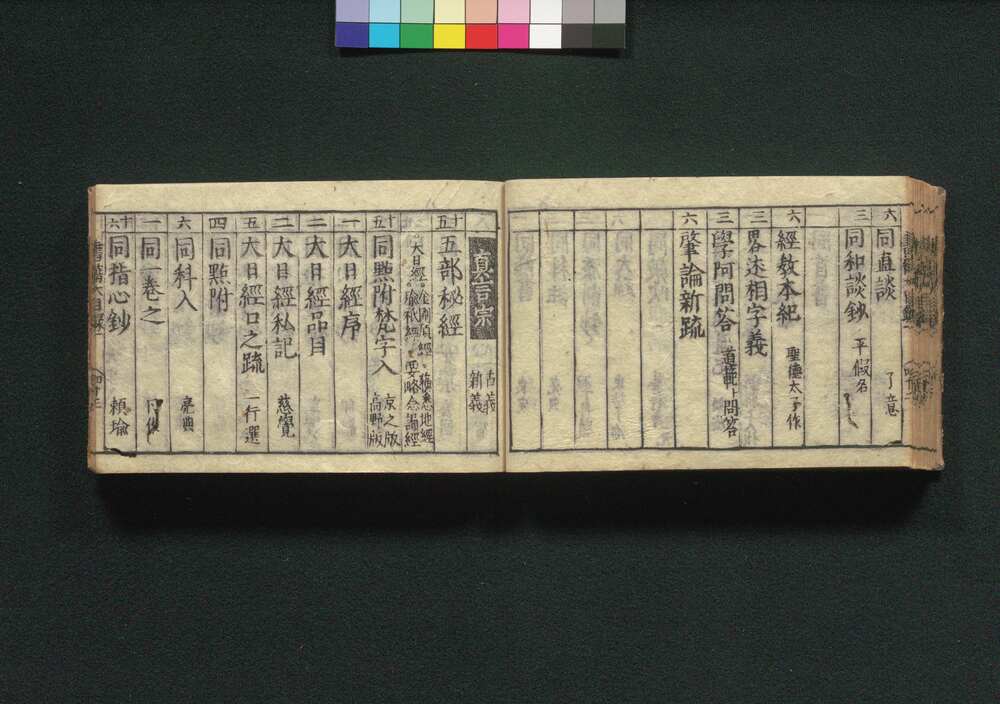 六 同直談 了意
三 同和談鈔 平假名
六 經教本紀 聖德太子作
三 畧述相字義
三 學阿問答 問答
六 肇論新疏
真言宗 古義 新義
十五 五部秘經
大日經 金剛頂經 蘇悉地經
瑜祇經 要略念誦經
十五 同點附梵字入 京之版 高野版
一 大日經序
二 大日經品目
二 大日經私記 慈覺
五 大日經口之疏 一行選
四 同點附
六 同科入 亮典
一 同一卷之
十六 同指心鈔 頼瑜
書籍目録